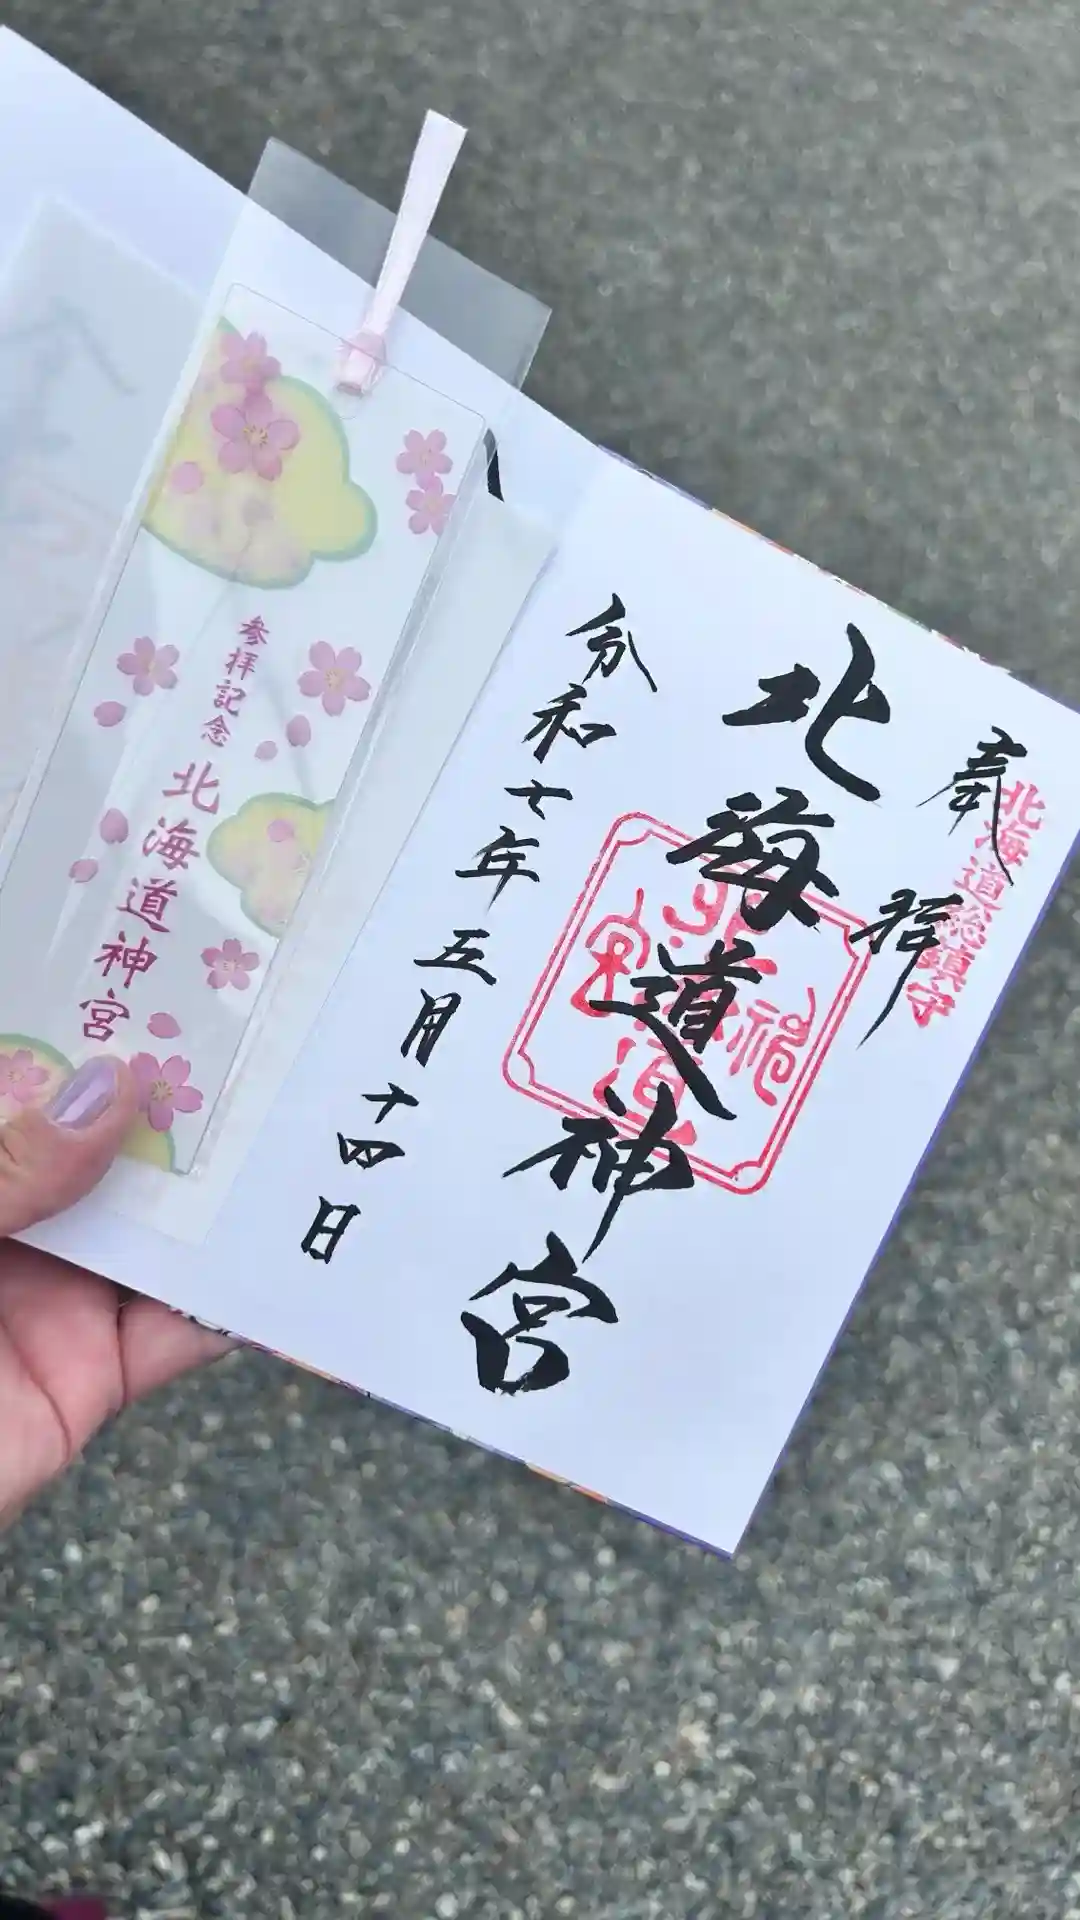 奉拝
北海道総鎮守
北海道神宮
令和七年五月十四日
参拝記念
北海道神宮